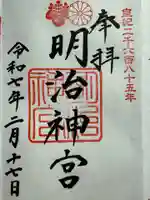 皇紀二千六百八十五年
奉拝
明治神宮
令和七年二月十七日